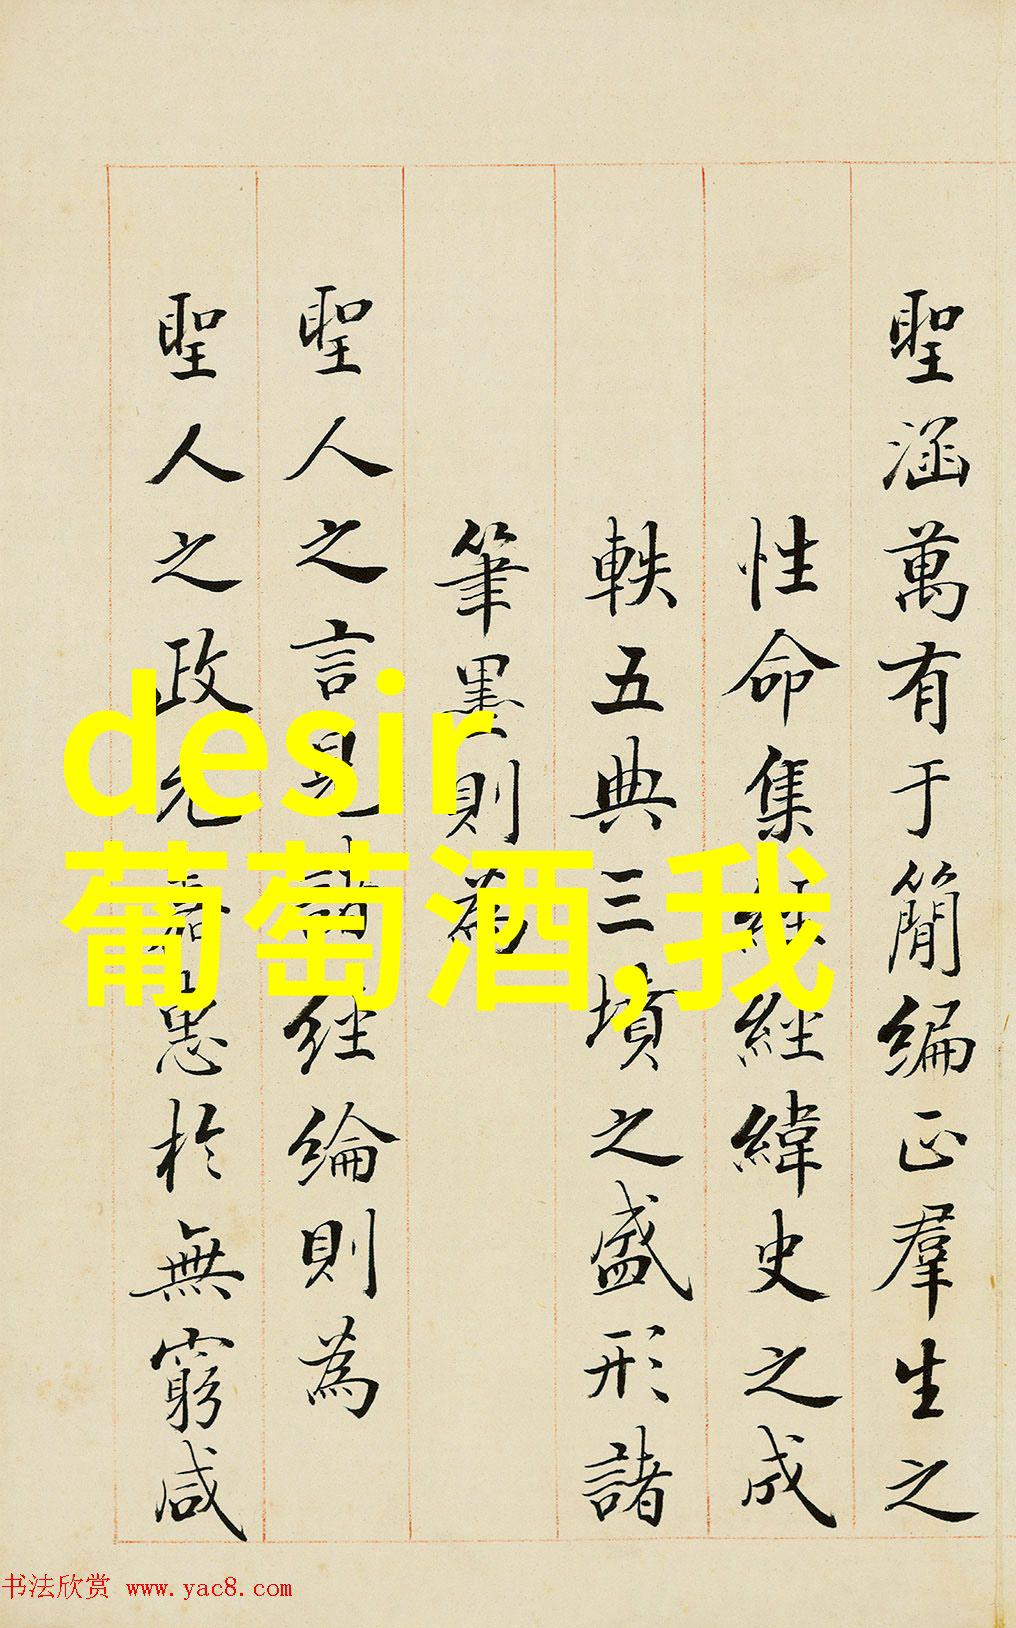 聖涵萬有于簡編正羣生之
性命集經經緯史之成
軼五典三墳之盛形諸
筆墨則為
聖人之言見諸經綸則為
聖人之政允升愚於無窮咸
desir
葡萄酒,我
书法欣赏 www.yac8.com